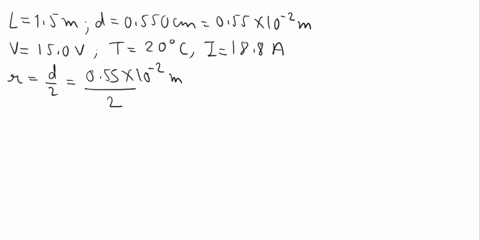 L=1.5m; d=0.550cm=0.55×10⁻² m
V=15.0V; T=20°C, I=18.8 A
r=d/2=0.55×10⁻² m/2